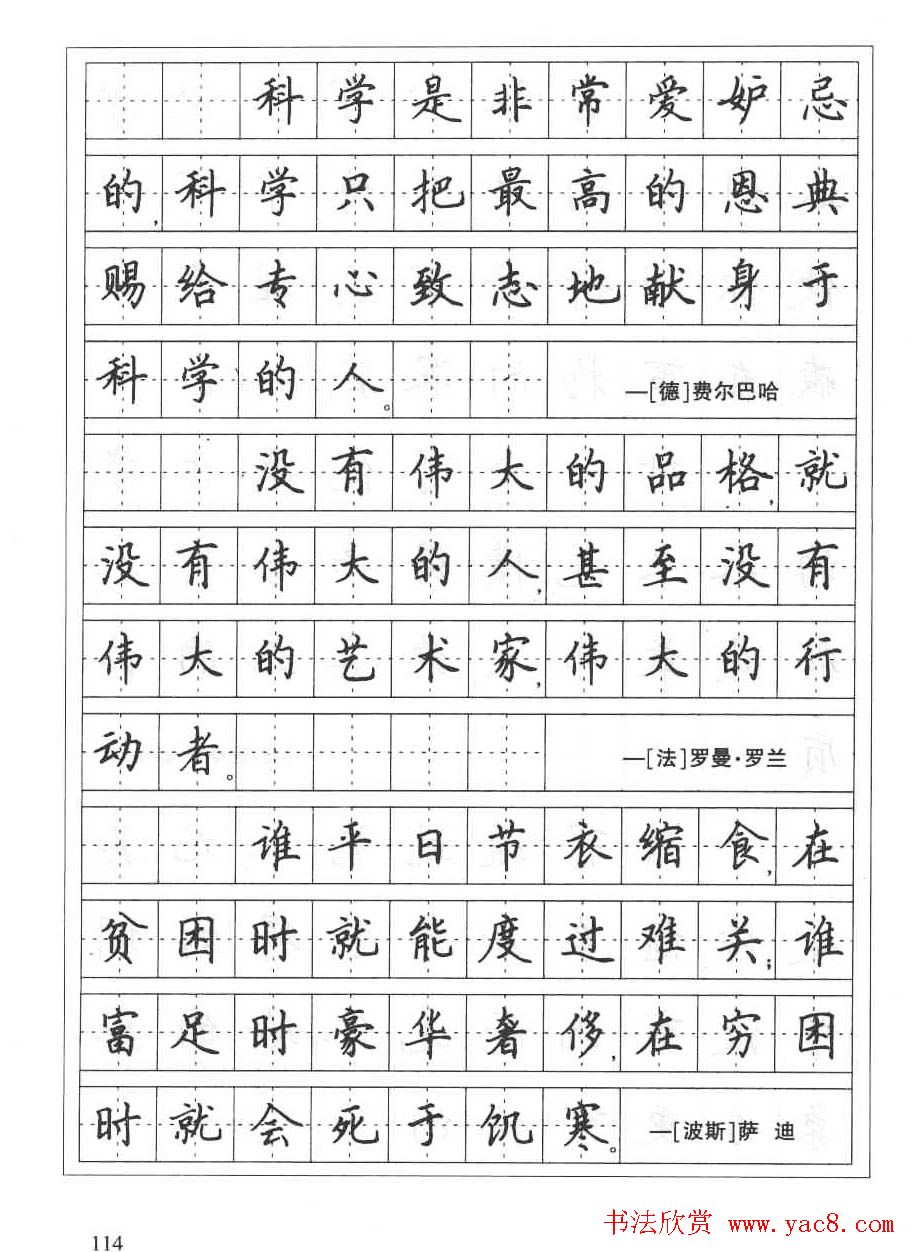 科学是非常爱妒忌
的,科学只把最高的恩典
赐给专心致志地献身于
科学的人。 —[德]费尔巴哈
没有伟大的品格,就
没有伟大的人,甚至没有
伟大的艺术家,伟大的行
动者。 —[法]罗曼·罗兰
谁平日节衣缩食,在
贫困时就能度过难关;谁
富足时豪华奢侈,在穷困
时就会死于饥寒。 —[波斯]萨 迪
114
书法欣赏 www.yac8.com